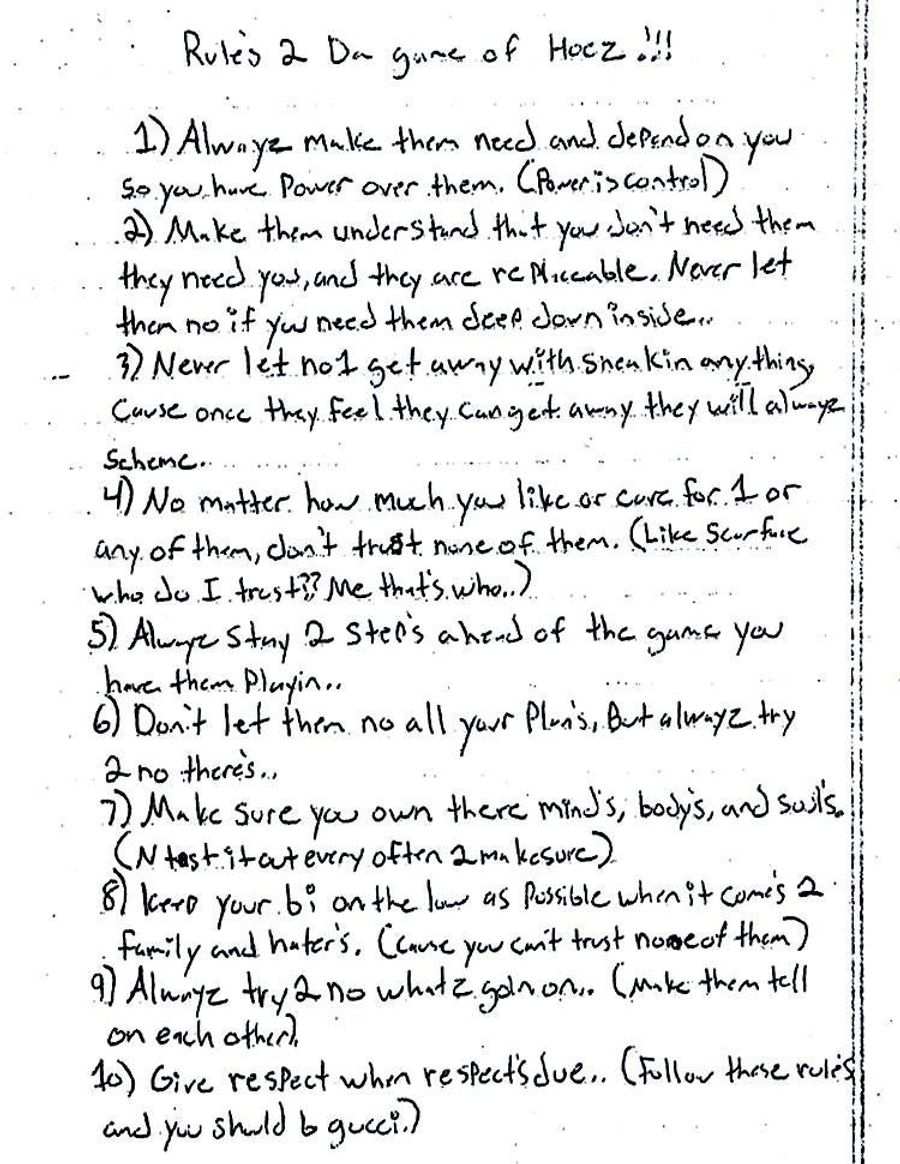 Rule's 2 Da game of Hoez!!!
1) Alwayz make them need and depend on you
so you have Power over them. (Power is control)
2) Make them understand that you don't need them
they need you, and they are replaceable. Never let
them no if you need them deep down inside..
3) Never let no1 get away with sneakin anything,
Cause once they feel they can get away they will alwayz
Scheme..
4) No matter how much you like or care for 1 or
any of them, don't trust none of them. (Like Scarface
who do I trust?? Me that's who..)
5) Alwayz stay 2 step's ahead of the game you
have them Playin..
6) Don't let them no all your Plan's, But alwayz try
2 no there's..
7) Make sure you own there mind's, body's, and soul's.
(N test it out every often 2 make sure)
8) keep your bi on the low as Possible when it come's 2
family and hater's. (cause you can't trust none of them)
9) Alwayz try 2 no whatz goin on.. (Make them tell
on each other).
10) Give respect when respect's due... (Follow these rule's
and you should b gucci.)